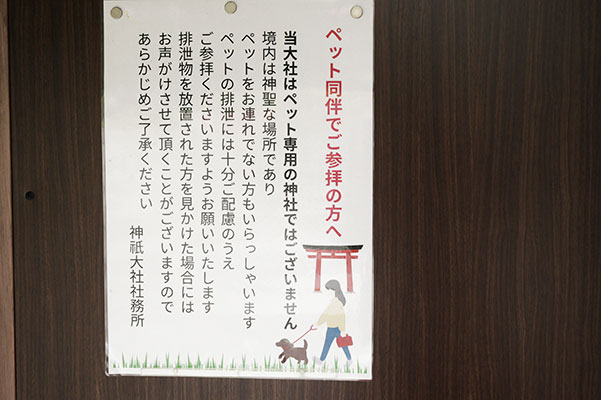 ペット同伴でご参拝の方へ
当大社はペット専用の神社ではございません
境内は神聖な場所であり
ペットをお連れでない方もいらっしゃいます
ペットの排泄には十分ご配慮のうえ
ご参拝くださいますようお願いいたします
排泄物を放置された方を見かけた場合には
お声がけさせて頂くことがございますので
あらかじめご了承ください
神祇大社社務所